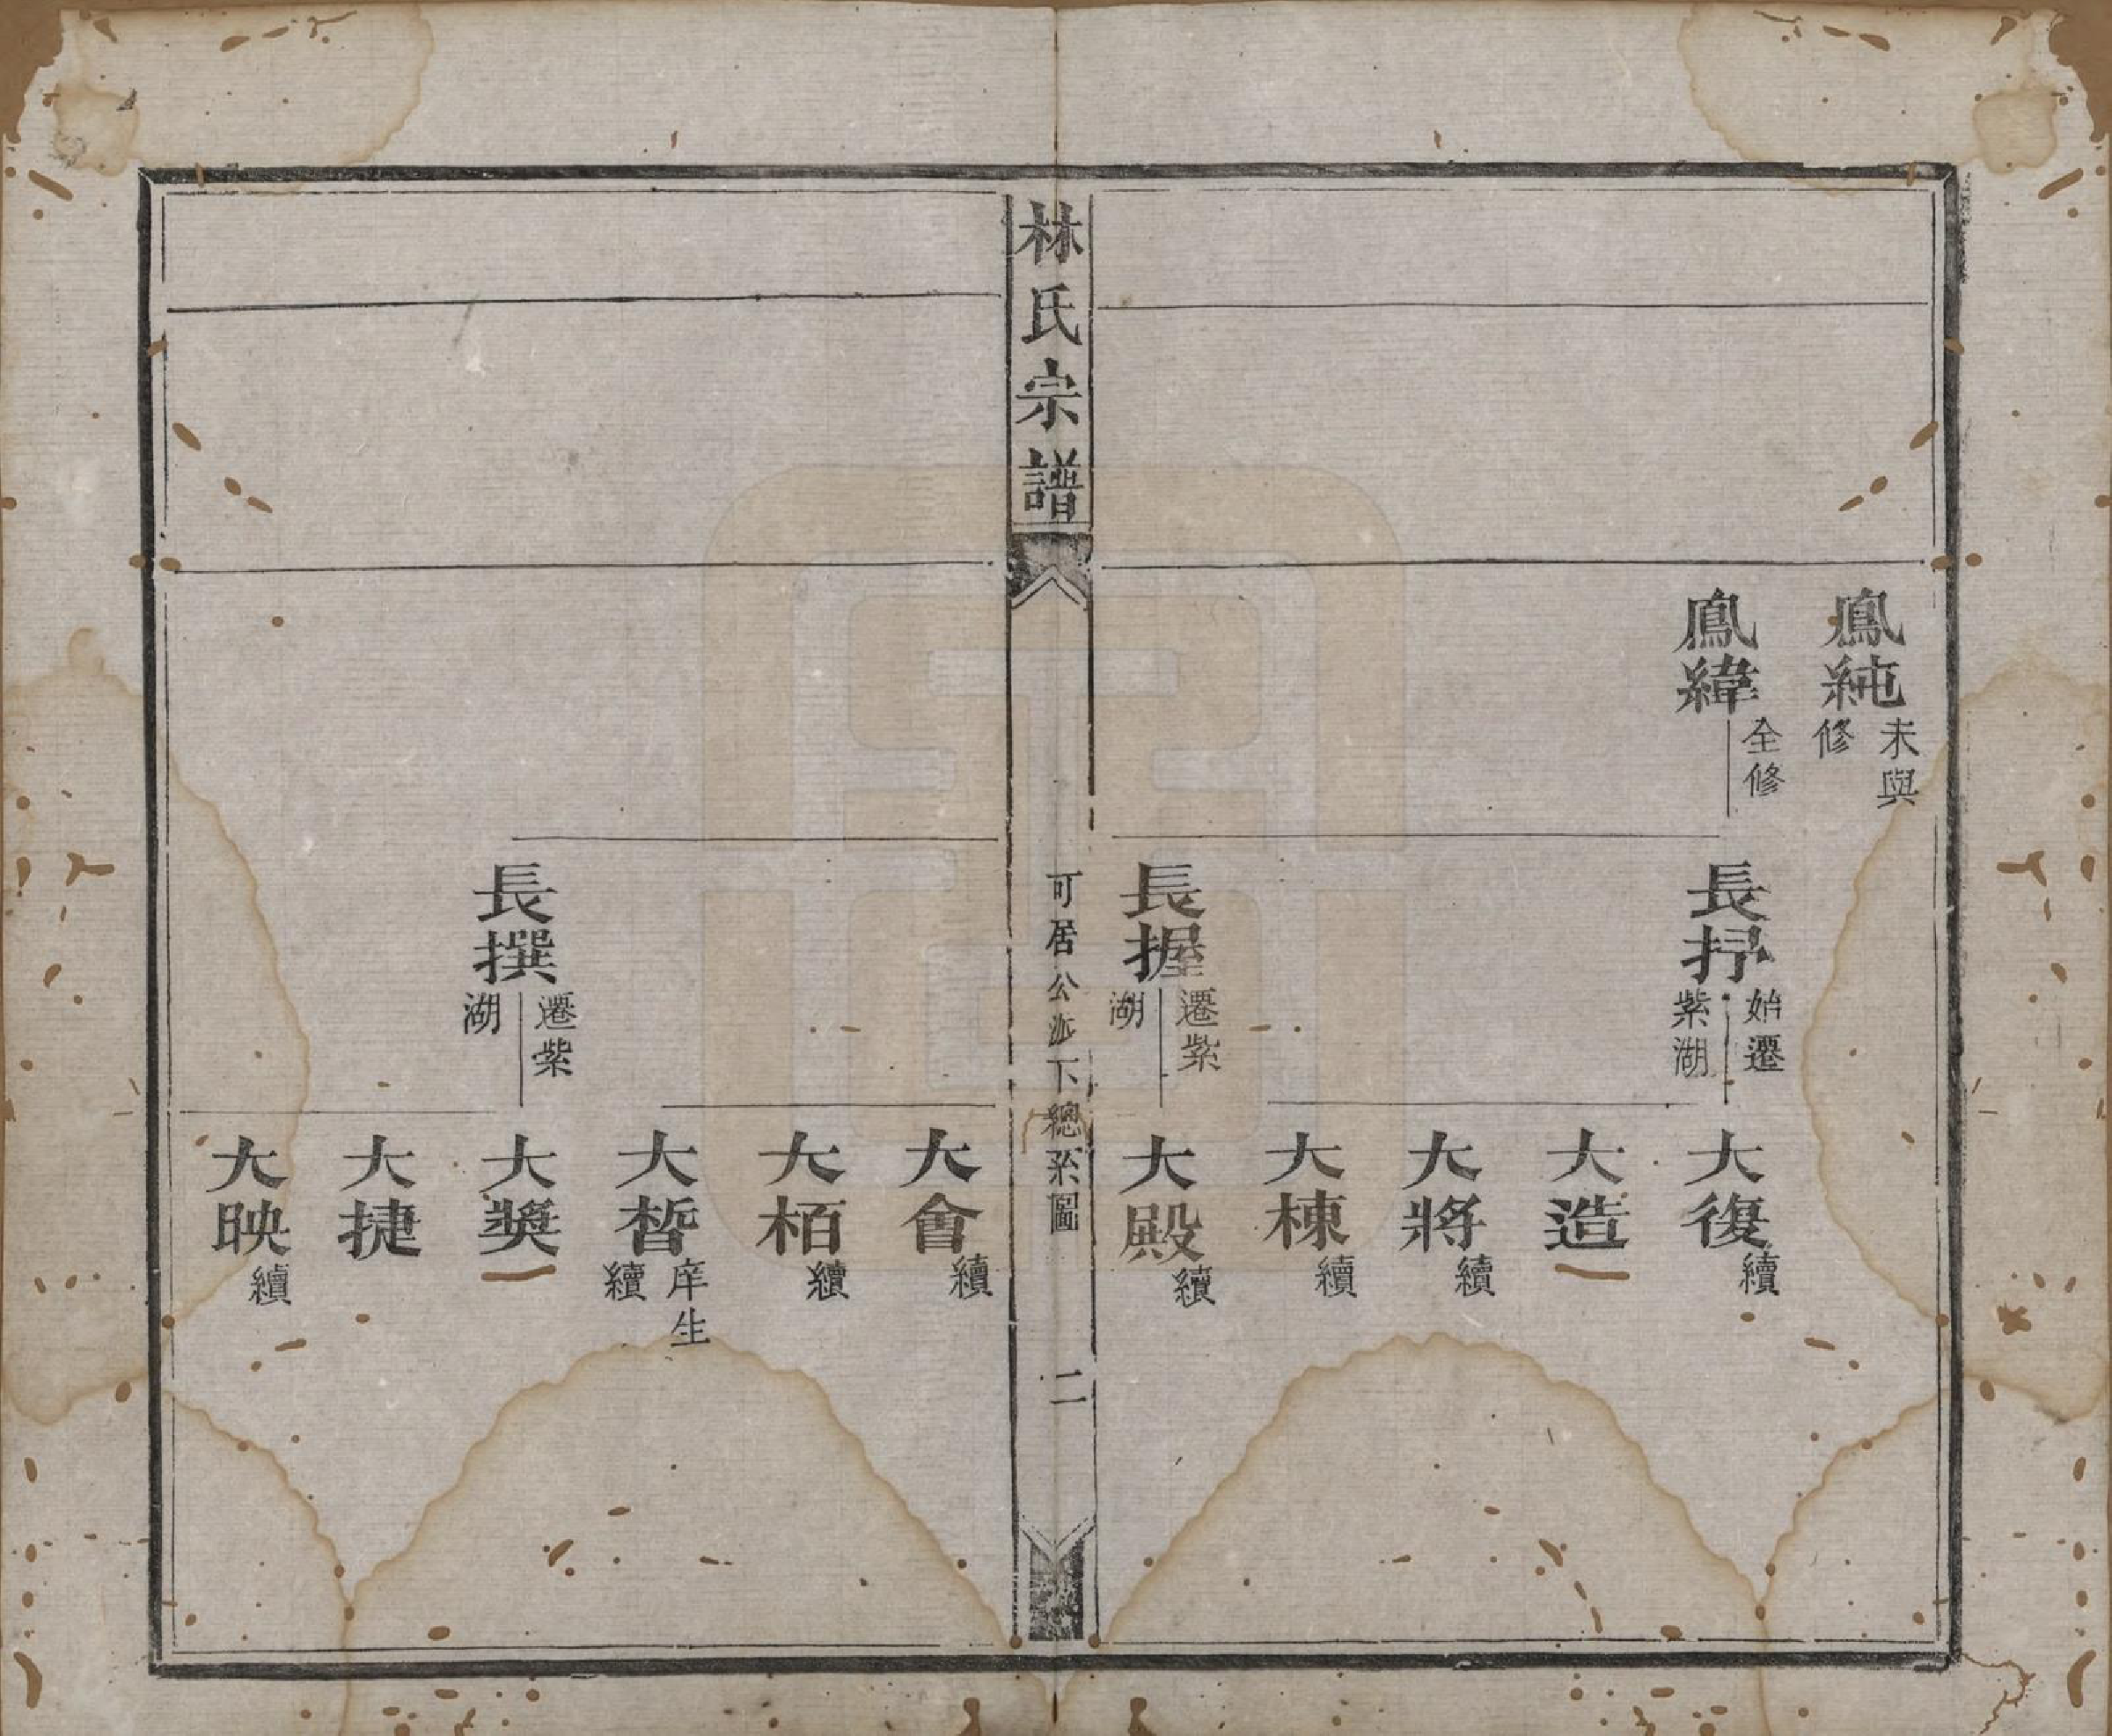 鳳純 未與修
鳳緯 仝修
長抒 始遷紫湖
大復 續
大造
大將 續
大棟 續
長握 遷紫湖
大殿 續
林氏宗譜
可居公派下總系圖
二
大會 續
大栢 續
大晳 庠生 續
長撰 遷紫湖
大獎
大捷
大映 續